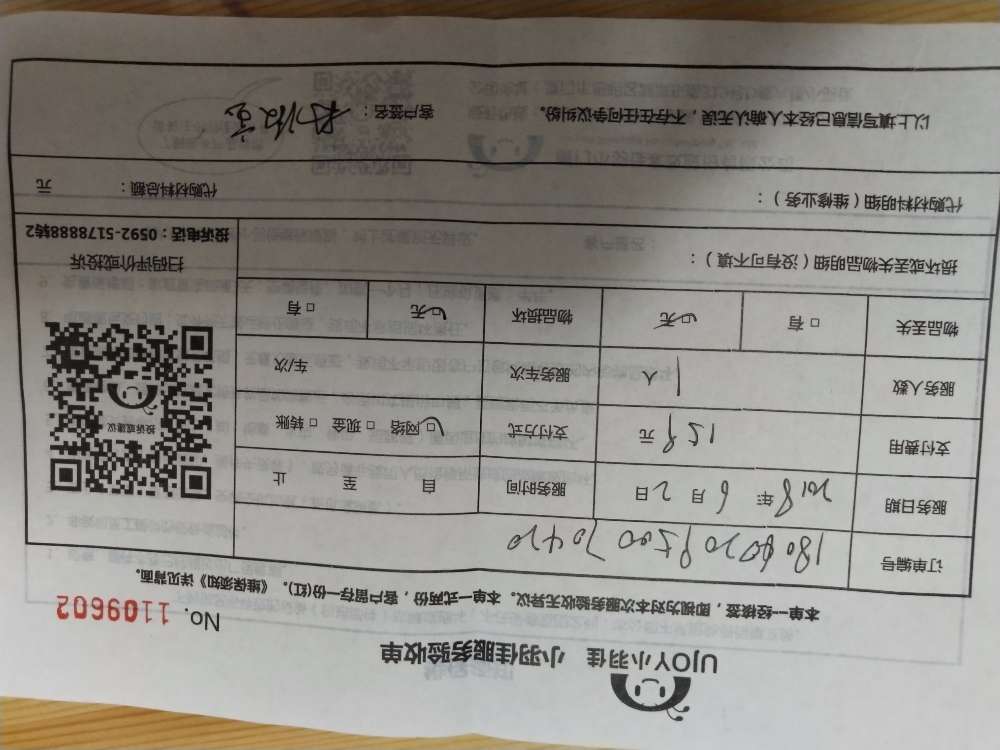 UJOY小羽佳 小羽佳服务验收单
No. 1109602
本单一经核签，即视为对本次服务验收无异议。本单一式两份，客户留存一份(红)。《维保须知》详见背面。
订单编号
服务日期 2018年 6月 2日 服务时间 自 至 止
支付费用 129元 支付方式 ☑网络 □现金 □转账
服务人数 1人 服务车次 车/次
物品丢失 □有 ☑无 物品损坏 □有 ☑无
投诉或建议
扫码评价或投诉
投诉电话：0592-5178888转2
损坏或丢失物品明细（没有可不填）：
代购材料明细（维修业务）： 代购材料总额： 元
以上填写信息已经本人确认无误，不存在任何争议纠纷。 客户签名：